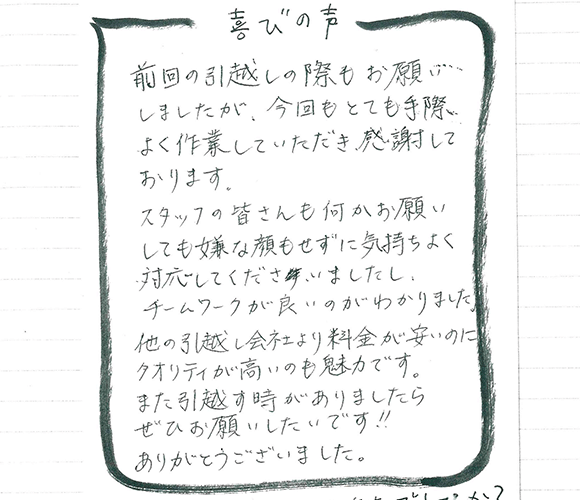 喜びの声
前回の引越しの際もお願い
しましたが、今回もとても手際
よく作業していただき感謝して
おります。
スタッフの皆さんも何かお願い
しても嫌な顔もせずに気持ちよく
対応してくださいましたし、
チームワークが良いのがわかりました。
他の引越し会社より料金が安いのに
クオリティが高いのも魅力です。
また引越す時がありましたら
ぜひお願いしたいです!!
ありがとうございました。